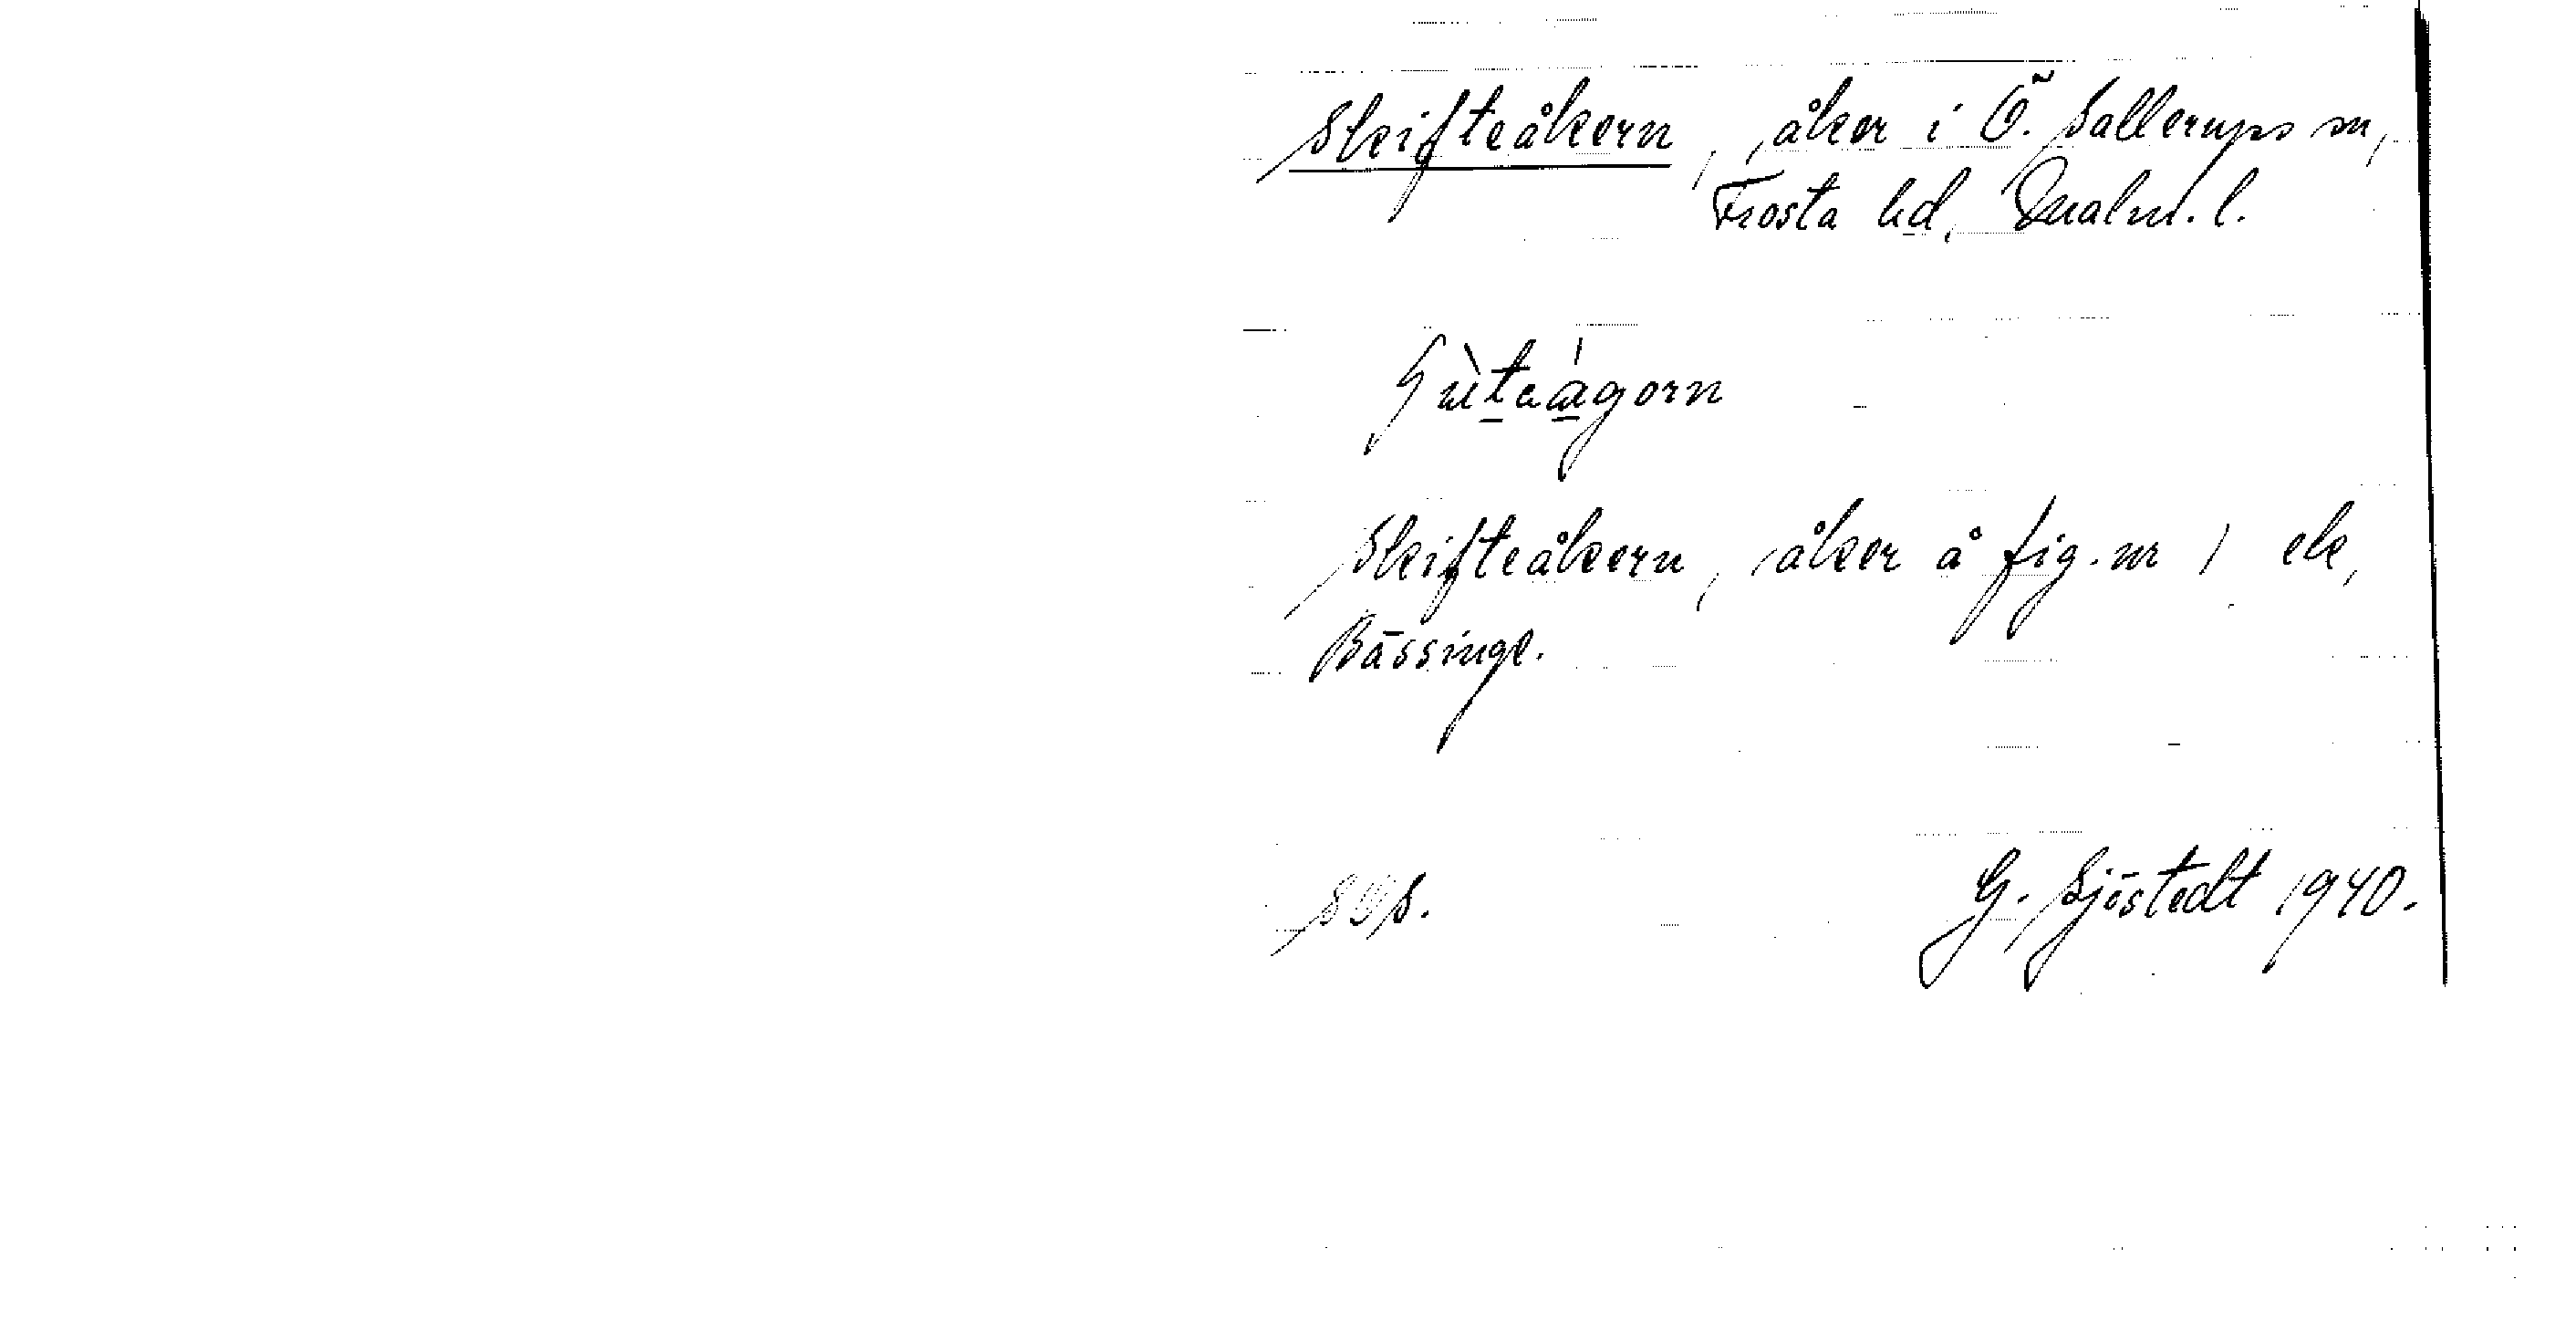 Skifteåkern, åker i Ö. Sallerups sn,
Frosta hd, Malm. l.
Skifteåkern, åker å fig. nr 1 ek,
Bässinge.
SOS.
G. Sjöstedt 1940.